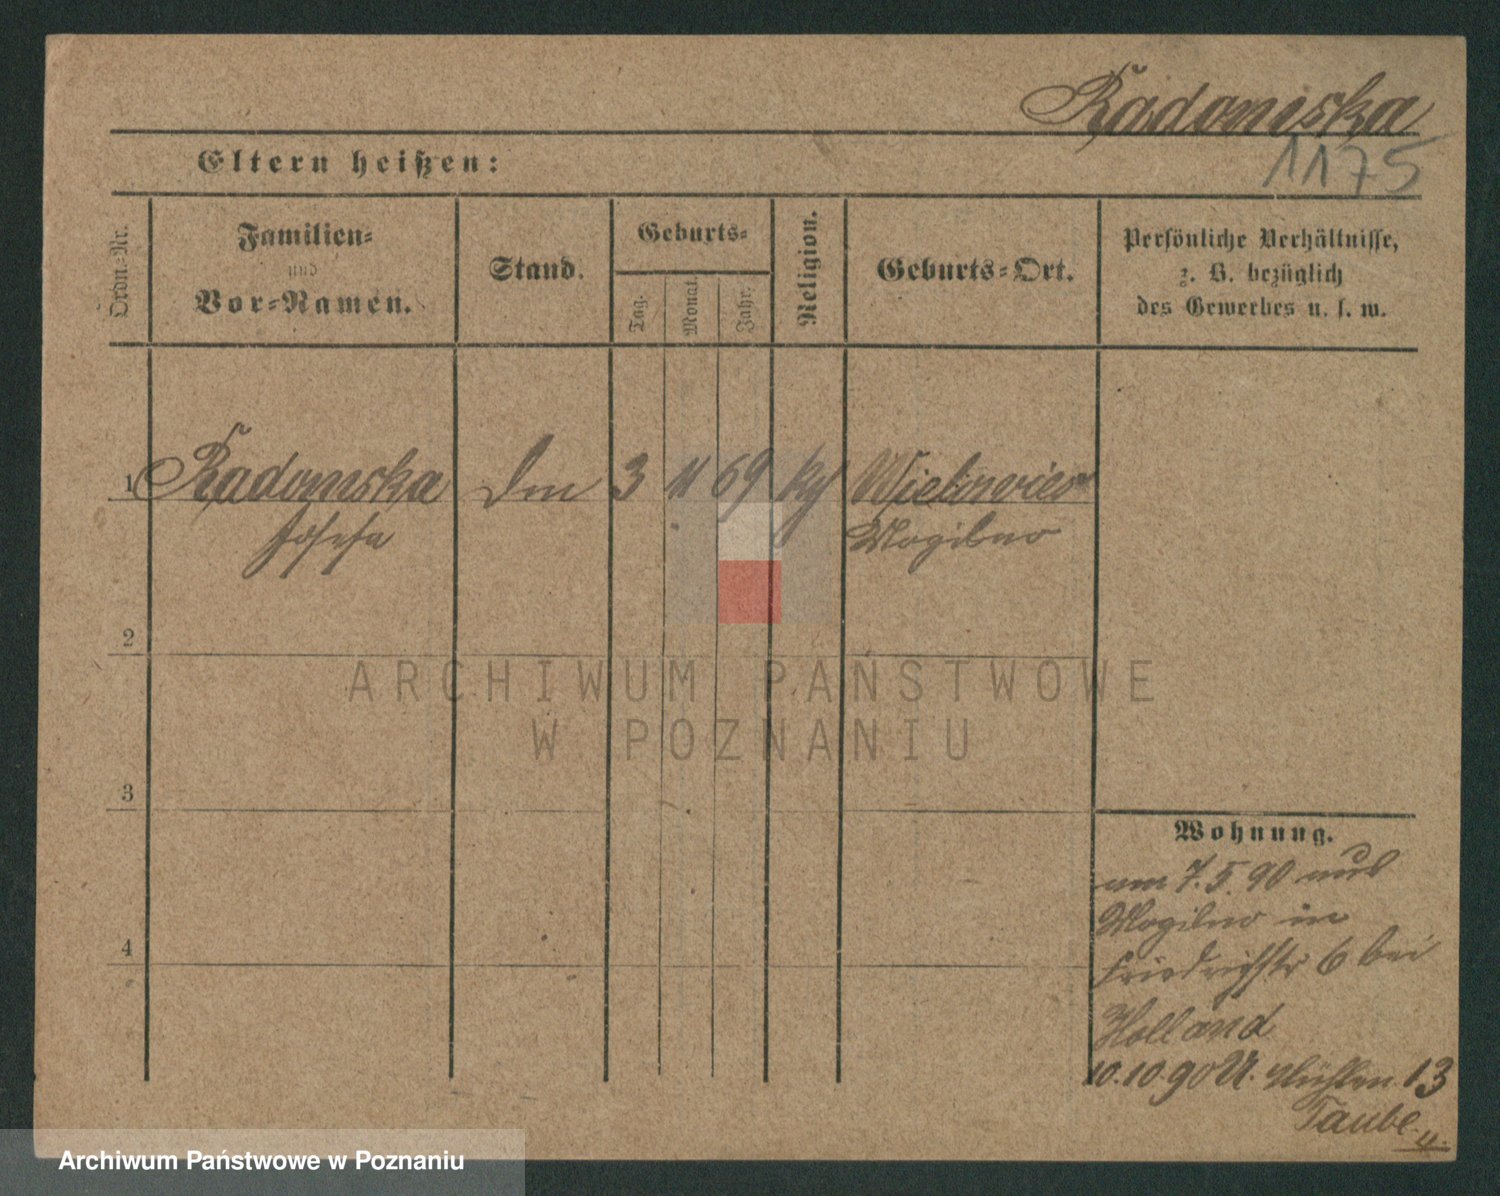 Radomska
1175
Eltern heißen:
Ordn.-Nr.
Familien-
und
Vor-Namen.
Stand.
Geburts-
Tag.
Monat.
Jahr.
Religion.
Geburts-Ort.
Persönliche Verhältnisse,
z. B. bezüglich
des Gewerbes u. s. w.
1 Radomska 3 11 69
Josefa Mogilno
2
3
4
Wohnung.
am 7.5.90 aus
Mogilno in
Friedrichstr 6 bei
Holland
10.10.90 U. Mühlen 13
Taube
ARCHIWUM PAŃSTWOWE
W POZNANIU
Archiwum Państwowe w Poznaniu